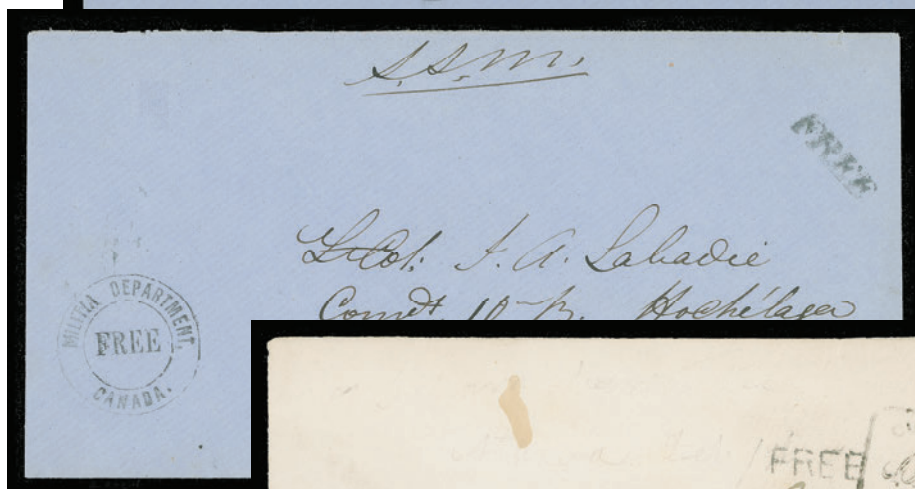 S.S.M.
FREE
Lt Col. J. A. Labadie
Comdt 10 B. Hochélaga
MILITIA DEPARTMENT.
FREE
CANADA.
FREE